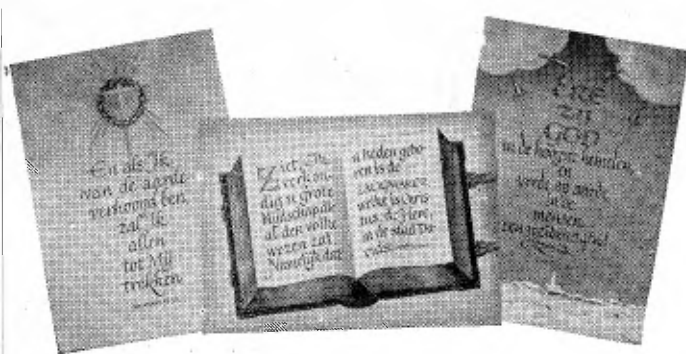 En als Ik
van de aarde
verhoogd ben,
zal Ik
allen
tot Mij
trekken
Ziet Ik
verkon-
dig u grote
blijdschap die
al den volke
wezen zal:
Namelijk dat
u heden gebo-
ren is de
ZALIGMAKER
welke is Chris-
tus, de Here,
in de stad Da-
vids.
ERE
ZIJ
GOD
in de hoogste hemelen,
en
vrede op aarde,
in de
mensen